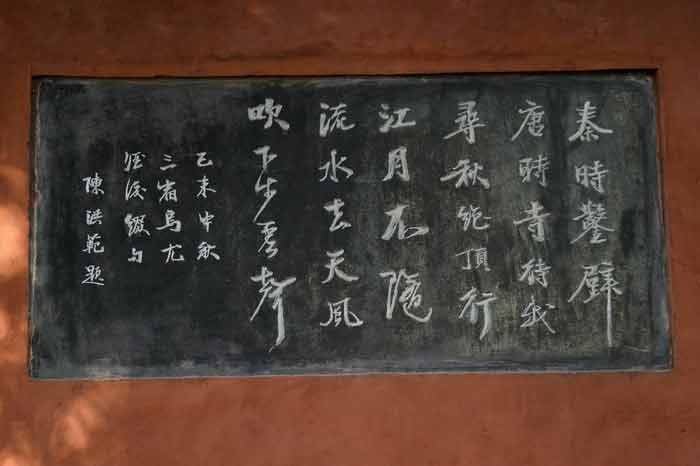 秦時鑿辟
唐時寺待我
尋秋絶頂行
江月不隨
流水去天風
吹下步雲聲
己未中秋
三宿烏尤
綴句
陳洪範題